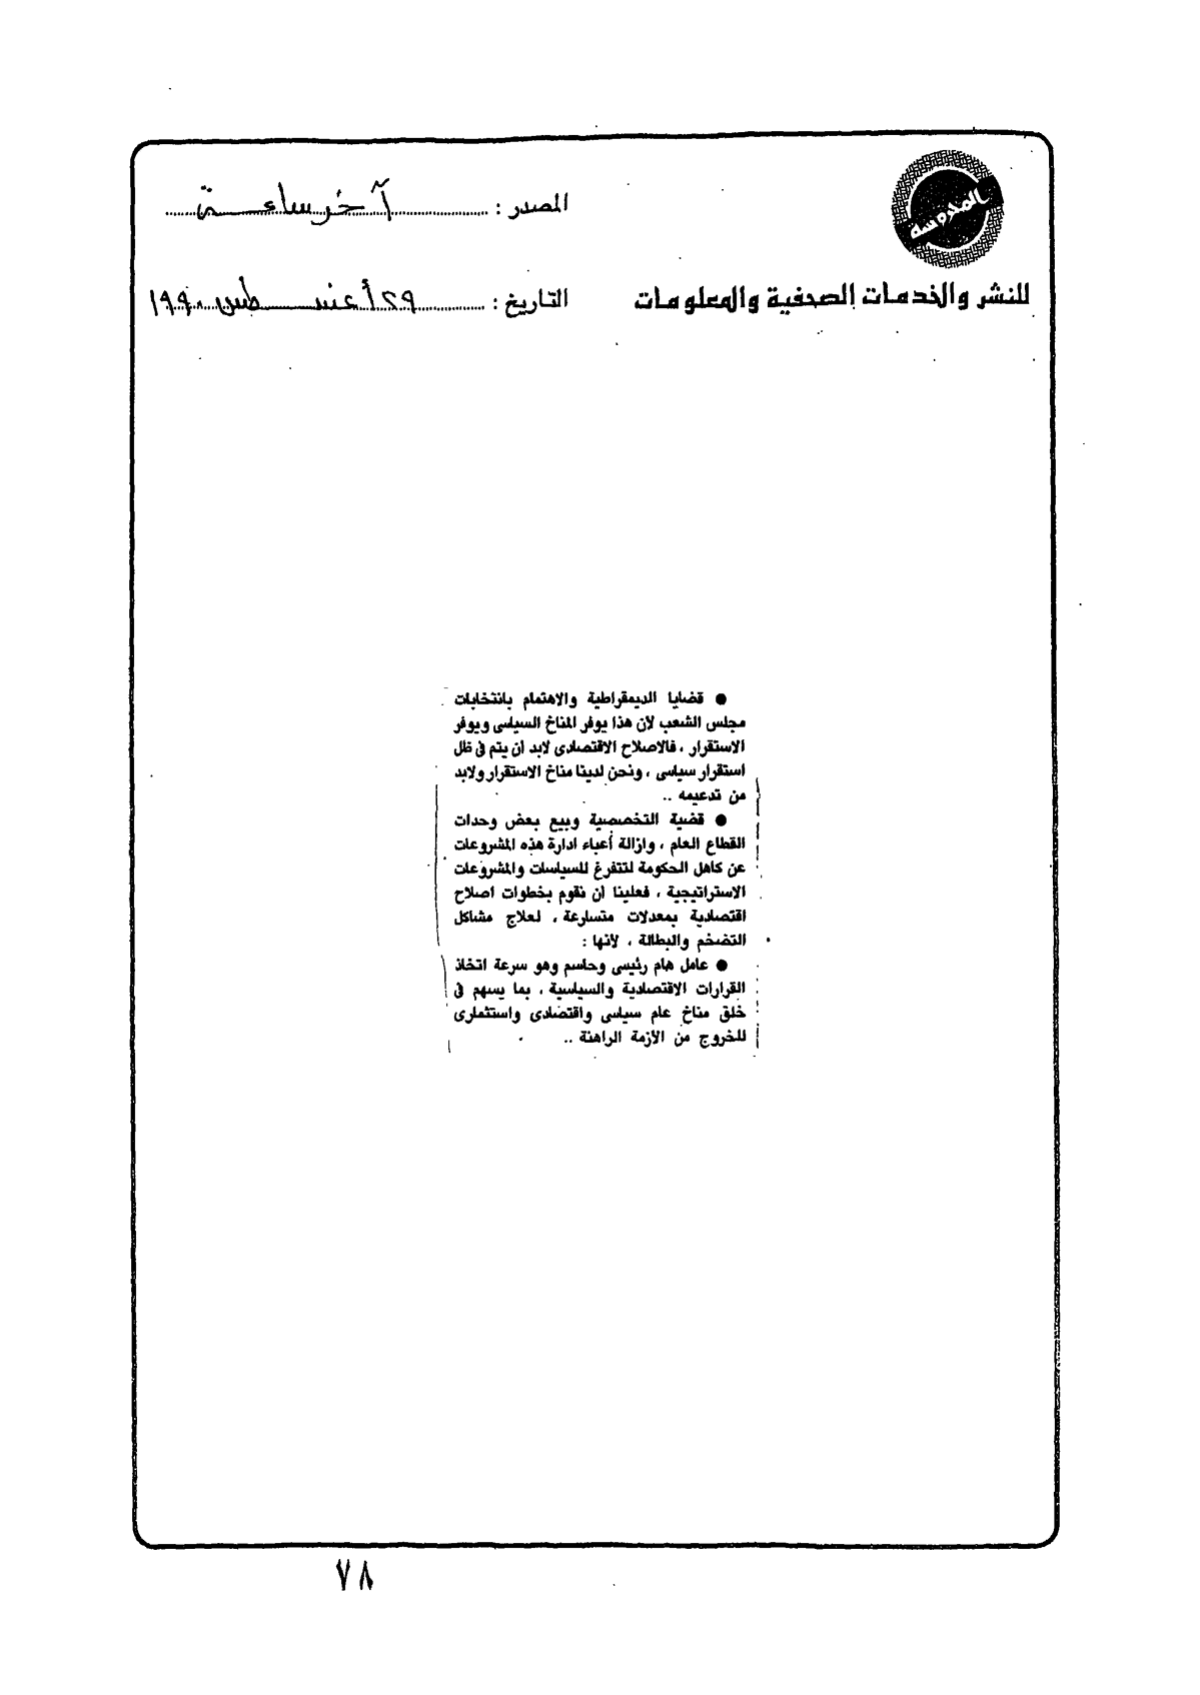 المحروسة
المصدر : آخر ساعة
للنشر والخدمات الصحفية والمعلومات
التاريخ : ٢٩ أغسطس ١٩٩٠
● قضايا الديمقراطية والاهتمام بانتخابات
مجلس الشعب لأن هذا يوفر المناخ السياسى ويوفر
الاستقرار ، فالاصلاح الاقتصادى لابد ان يتم فى ظل
استقرار سياسى ، ونحن لدينا مناخ الاستقرار ولابد
من تدعيمه ..
● قضية التخصصية وبيع بعض وحدات
القطاع العام ، وازالة أعباء ادارة هذه المشروعات
عن كاهل الحكومة لتتفرغ للسياسات والمشروعات
الاستراتيجية ، فعلينا ان نقوم بخطوات اصلاح
اقتصادية بمعدلات متسارعة ، لعلاج مشاكل
التضخم والبطالة ، لأنها :
● عامل هام رئيسى وحاسم وهو سرعة اتخاذ
القرارات الاقتصادية والسياسية ، بما يسهم فى
خلق مناخ عام سياسى واقتصادى واستثمارى
للخروج من الأزمة الراهنة ..
٧٨